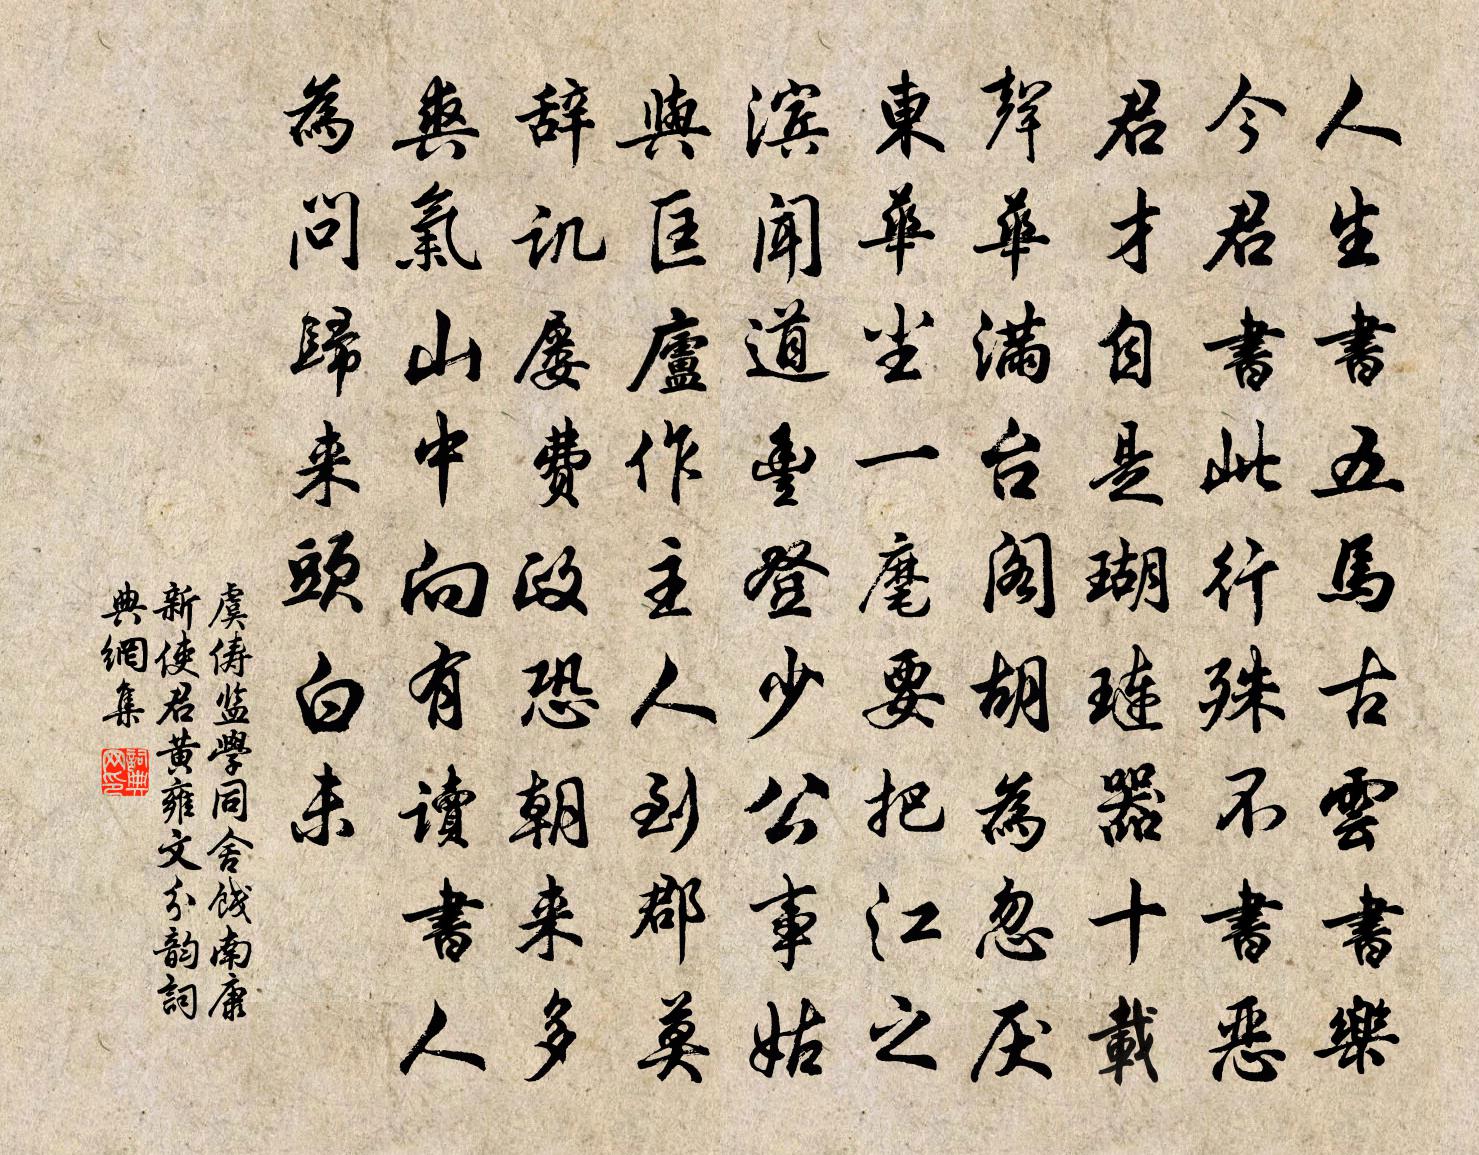 人生書五馬古雲書樂
今君書此行殊不書惡
君才自是瑚璉器十載
聲華滿台閣胡為忽厌
東華尘一麾要把江之
滨聞道豊登少公事姑
與匡廬作主人到郡莫
辞讥屡費政恐朝来多
爽氣山中向有讀書人
為問歸来頭白未
虞俦监學同舍餞南康
新使君黄雍文分韵詞
典網集
詞典网印